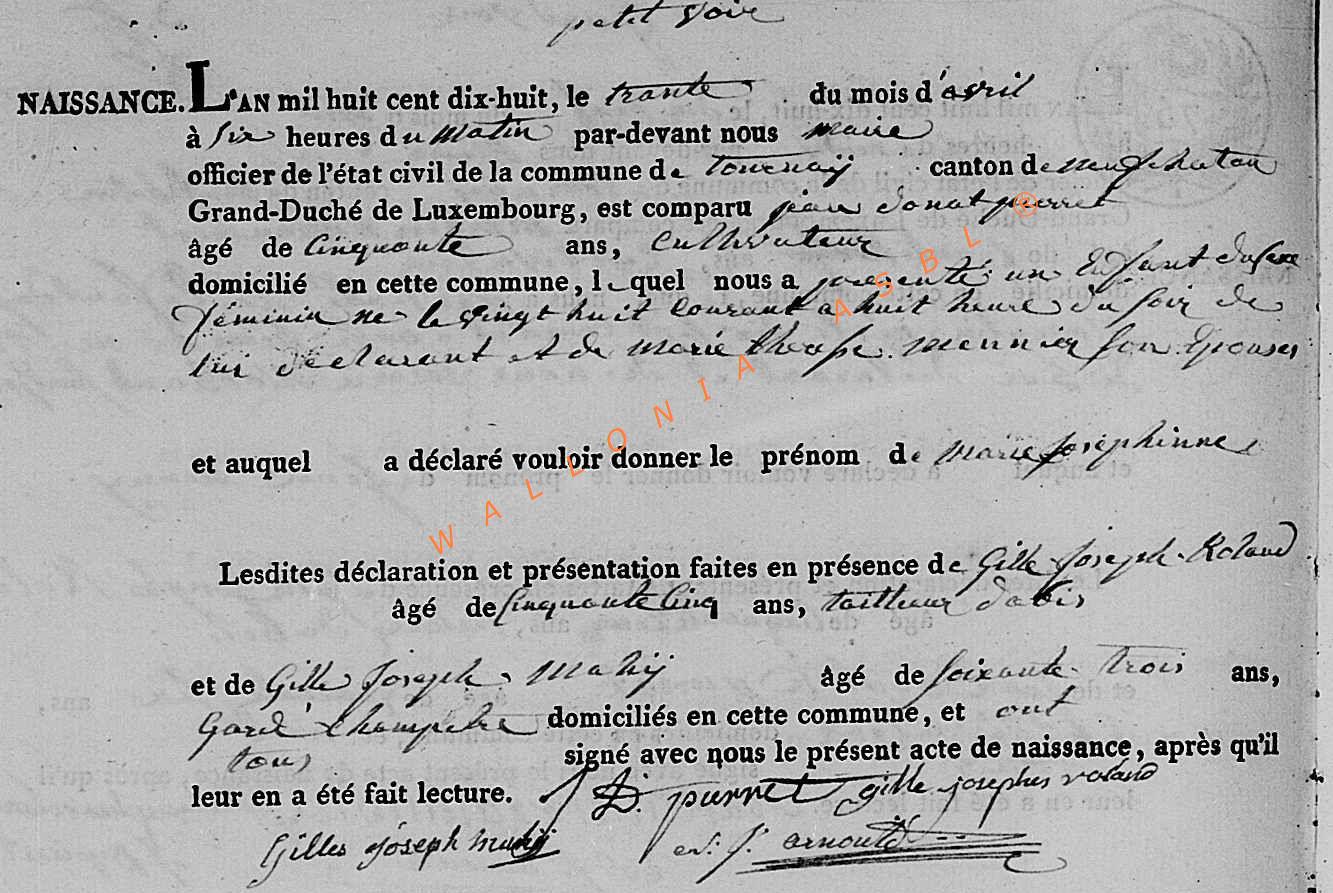 petit voir
NAISSANCE. L'AN mil huit cent dix-huit, le trante du mois d'avril
à six heures du matin par-devant nous maire
officier de l'état civil de la commune de tournaÿ canton de neufchatau
Grand-Duché de Luxembourg, est comparu jean donat pierret
âgé de Cinquante ans, Cultivateur
domicilié en cette commune, lequel nous a presenté un Enfant du sexe
féminin né le vingt huit courant a huit heure du soir de
lui déclarant et de marie therese meunier son Epouse
et auquel a déclaré vouloir donner le prénom de marie josephinne
Lesdites déclaration et présentation faites en présence de Gille Joseph Roland
âgé de Cinquante Cinq ans, tailleur dabis
et de Gille Joseph Mahÿ âgé de soixante trois ans,
Garde Champetre domiciliés en cette commune, et ont
tous signé avec nous le présent acte de naissance, après qu'il
leur en a été fait lecture. J D. pierret gille josephs roland
Gilles joseph mahÿ J. arnould
WALLONIA ASBL ®